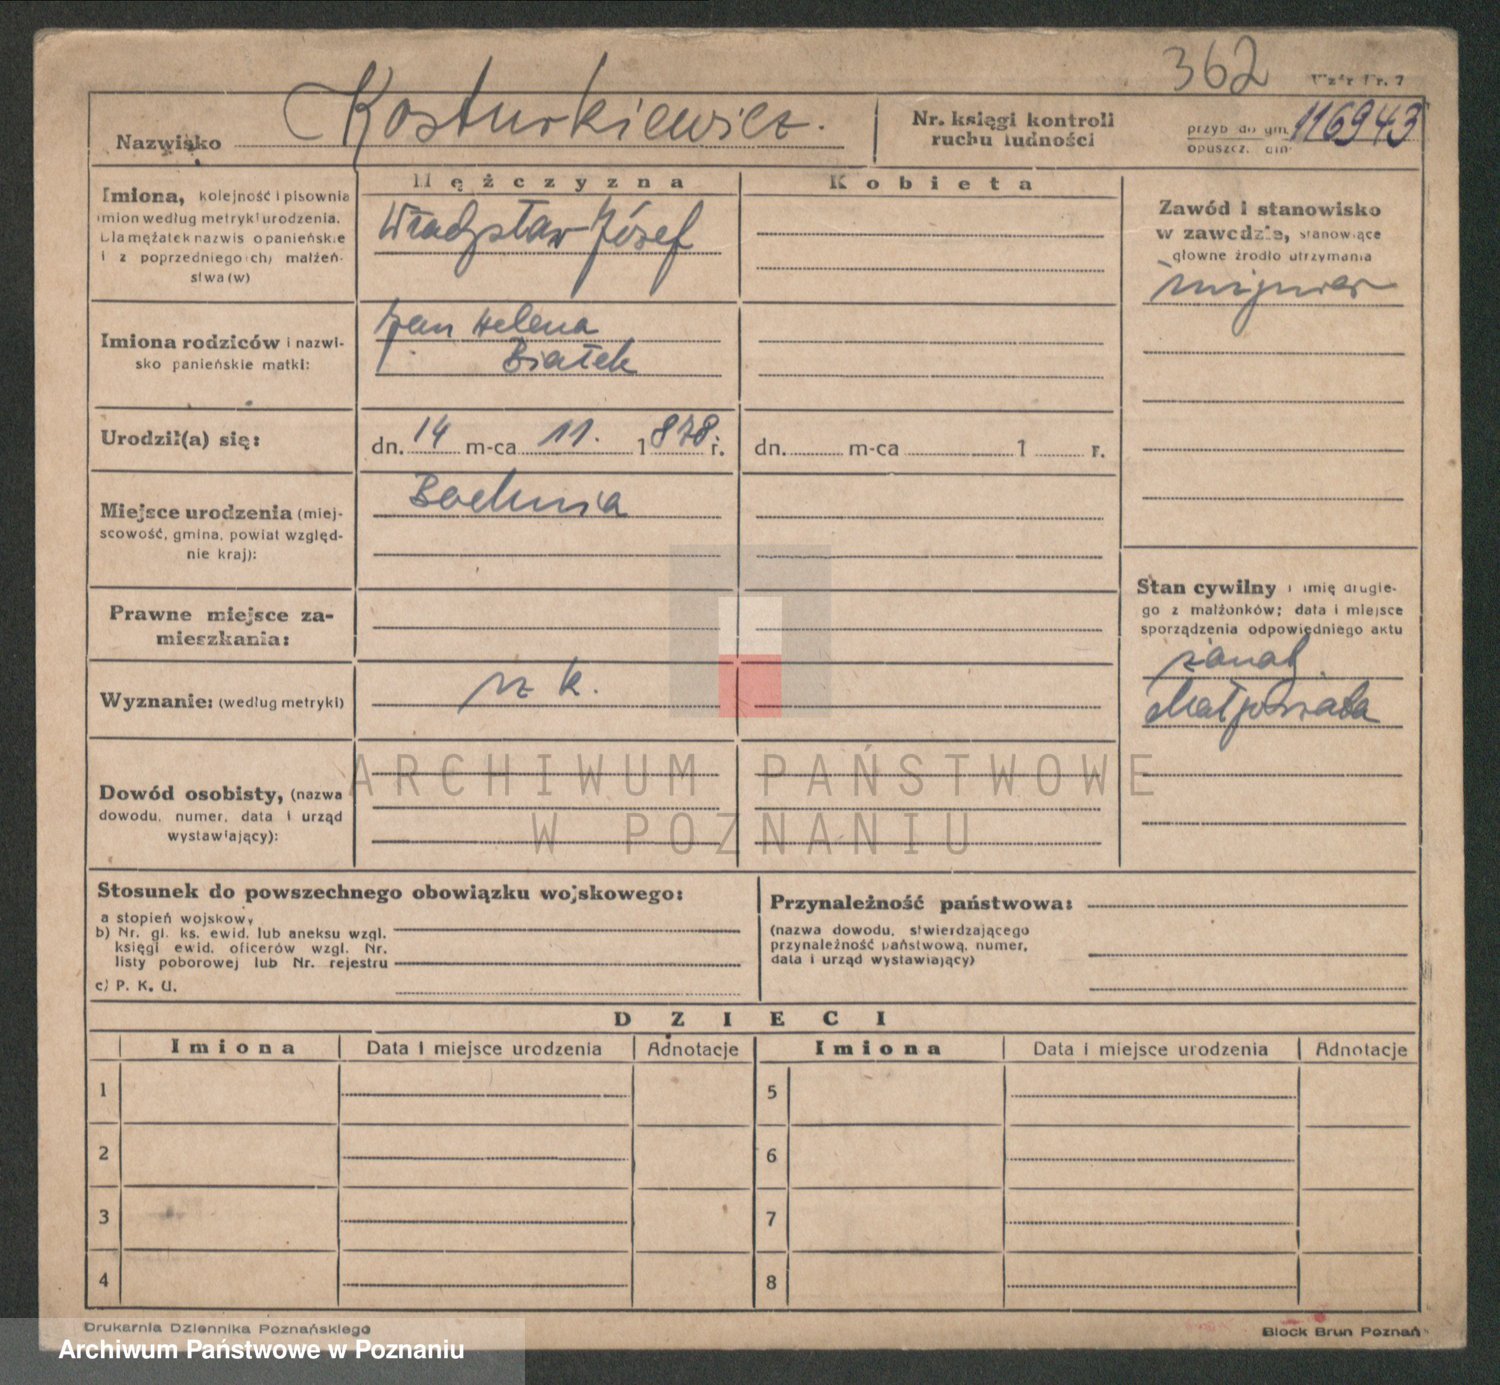 362
Wzór Nr. 7
Nazwisko Kosturkiewicz.
Nr. księgi kontroli
ruchu ludności
przyb do gm.
opuszcz. gm. 116943
Imiona, kolejność i pisownia
imion według metryki urodzenia.
Dla mężatek nazwisko panieńskie
i z poprzedniego(ich) małżeń-
stwa(w)
Mężczyzna
Władysław Józef
Kobieta
Zawód i stanowisko
w zawodzie, stanowiące
główne źródło utrzymania
inżynier
Imiona rodziców i nazwi-
sko panieńskie matki:
Jan Helena
Białek
Urodził(a) się:
dn. 14 m-ca 11. 1878 r.
dn. m-ca 1 r.
Miejsce urodzenia (miej-
scowość, gmina, powiat względ-
nie kraj):
Bochnia
Prawne miejsce za-
mieszkania:
Stan cywilny i imię drugie-
go z małżonków; data i miejsce
sporządzenia odpowiedniego aktu
żonaty
Małgorzata
Wyznanie: (według metryki)
rz k.
Dowód osobisty, (nazwa
dowodu, numer, data i urząd
wystawiający):
ARCHIWUM PAŃSTWOWE
W POZNANIU
Stosunek do powszechnego obowiązku wojskowego:
a stopień wojskowy
b) Nr. gł. ks. ewid. lub aneksu wzgl.
księgi ewid. oficerów wzgl. Nr.
listy poborowej lub Nr. rejestru
c) P. K. U.
Przynależność państwowa:
(nazwa dowodu, stwierdzającego
przynależność państwową, numer,
data i urząd wystawiający)
DZIECI
Imiona Data i miejsce urodzenia Adnotacje Imiona Data i miejsce urodzenia Adnotacje
1 5
2 6
3 7
4 8
Drukarnia Dziennika Poznańskiego
Block Brun Poznań
Archiwum Państwowe w Poznaniu